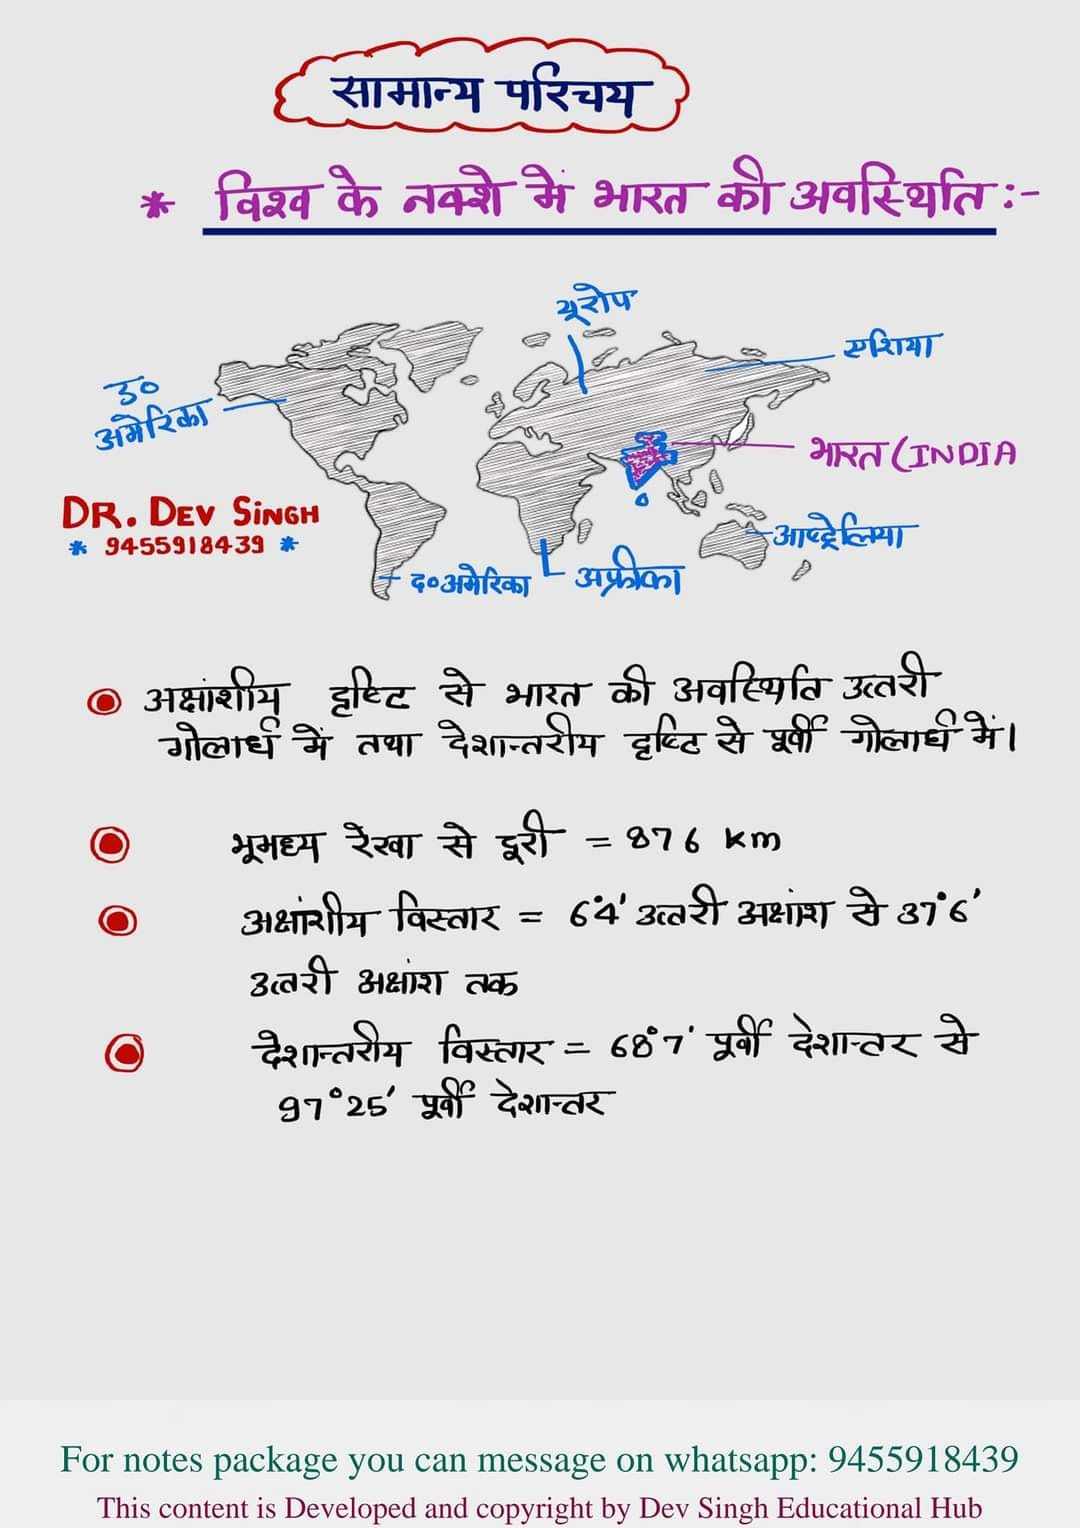 सामान्य परिचय
* विश्व के नक्शे में भारत की अवस्थिति :-
यूरोप
एशिया
उ०
अमेरिका
भारत (INDIA
DR. DEV SINGH
* 9455918439 *
आष्ट्रेलिया
द०अमेरिका
अफ्रीका
अक्षांशीय दृष्टि से भारत की अवस्थिति उत्तरी
गोलार्ध में तथा देशान्तरीय दृष्टि से पूर्वी गोलार्ध में।
भूमध्य रेखा से दूरी = 876 km
अक्षांशीय विस्तार = 6°4' उत्तरी अक्षांश से 37°6'
उत्तरी अक्षांश तक
देशान्तरीय विस्तार = 68°7' पूर्वी देशान्तर से
97°25' पूर्वी देशान्तर
For notes package you can message on whatsapp: 9455918439
This content is Developed and copyright by Dev Singh Educational Hub